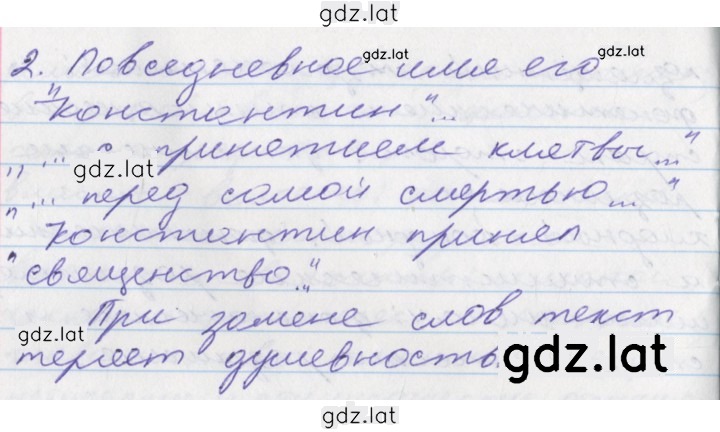 gdz.lat
2. Повседневное имя его
gdz.lat
gdz.lat
"Константин"...
"... с принятием клятвы..."
gdz.lat
"... перед самой смертью..."
"Константин принял
"священство."
При замене слов текст
gdz.lat
теряет душевность.
gdz.lat
gdz.lat